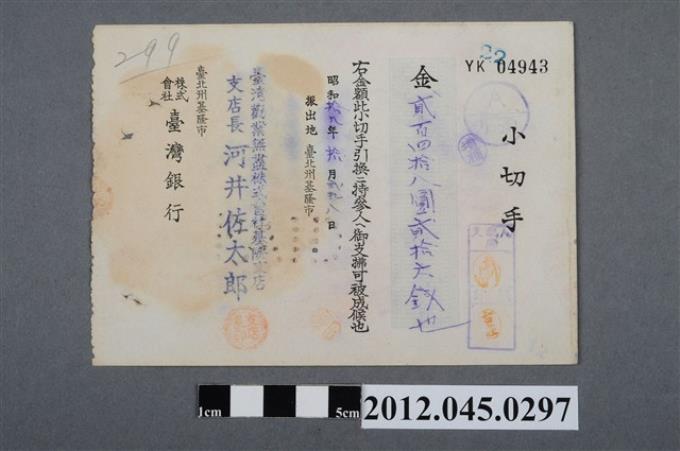 22
YK 04943
小切手
金 貳百四拾八圓貳拾六錢也
右金額此小切手引換ニ持參人ヘ御支拂可被成候也
昭和拾九年 拾月貳拾八日
振出地 臺北州基隆市
臺灣勸業無盡株式會社基隆支店
支店長 河井佐太郎
臺北州基隆市
株式會社 臺灣銀行
299
1cm
5cm
2012.045.0297